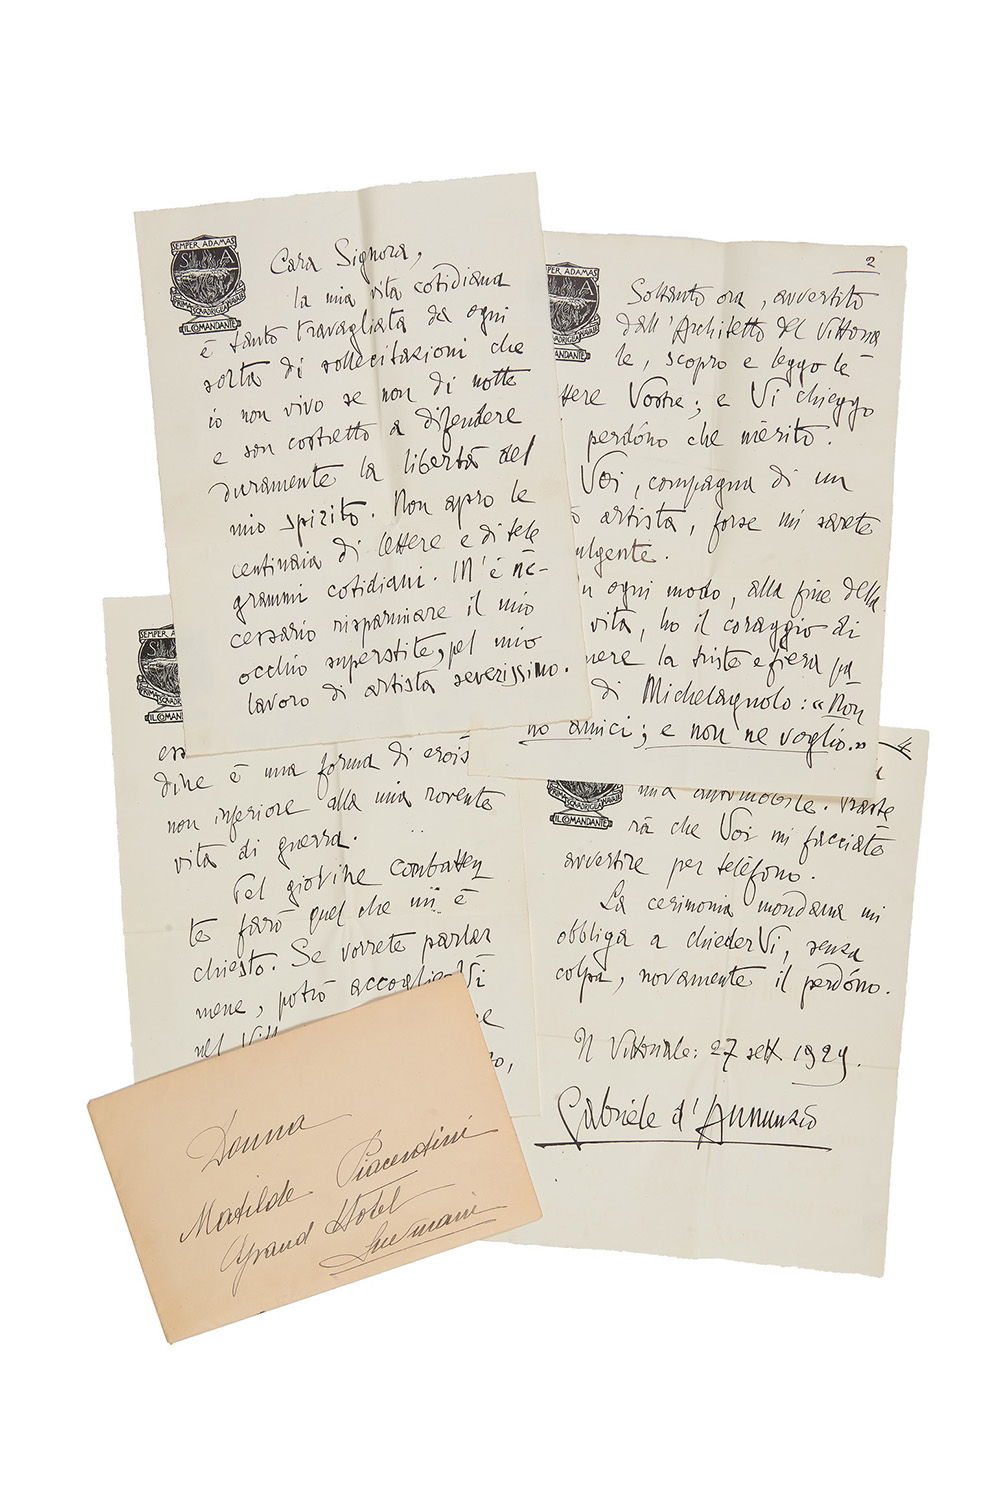 SEMPER ADAMAS
S A
PRIMA SQUADRIGLIA NAVALE
IL COMANDANTE
Cara Signora,
la mia vita cotidiana
è tanto travagliata da ogni
sorta di sollecitazioni che
io non vivo se non di notte
e son costretto a difendere
duramente la libertà del
mio spirito. Non apro le
centinaia di lettere e di tele
grammi cotidiani. M'è ne-
cessario risparmiare il mio
occhio superstite, pel mio
lavoro di artista severissimo.
2
PER ADAMAS
A
ANDANTE
Soltanto ora, avvertito
dall'Architetto del Vittoria
le, scopro e leggo le
ttere Vostre; e Vi chieggo
perdóno che mèrito.
Voi, compagna di un
artista, forse mi sarete
ulgente.
n ogni modo, alla fine della
vita, ho il coraggio di
mere la triste e fiera pa
di Michelagnolo: «Non
ho amici; e non ne voglio.»
SEMPER A
S
IL COMAN
dine è una forma di erois
non inferiore alla mia rovente
vita di guerra.
Pel giovine combatten
te farò quel che mi è
chiesto. Se vorrete parlar
mene, potrò accoglierVi
nel Vitt
4
IL COMANDANTE
una automobile. Baste
rà che Voi mi facciate
avvertire per telèfono.
La cerimonia mondana mi
obbliga a chiederVi, senza
colpa, novamente il perdóno.
Il Vittoriale: 27 sett 1929.
Gabriele d'Annunzio
Donna
Matilde Piacentini
Grand Hotel